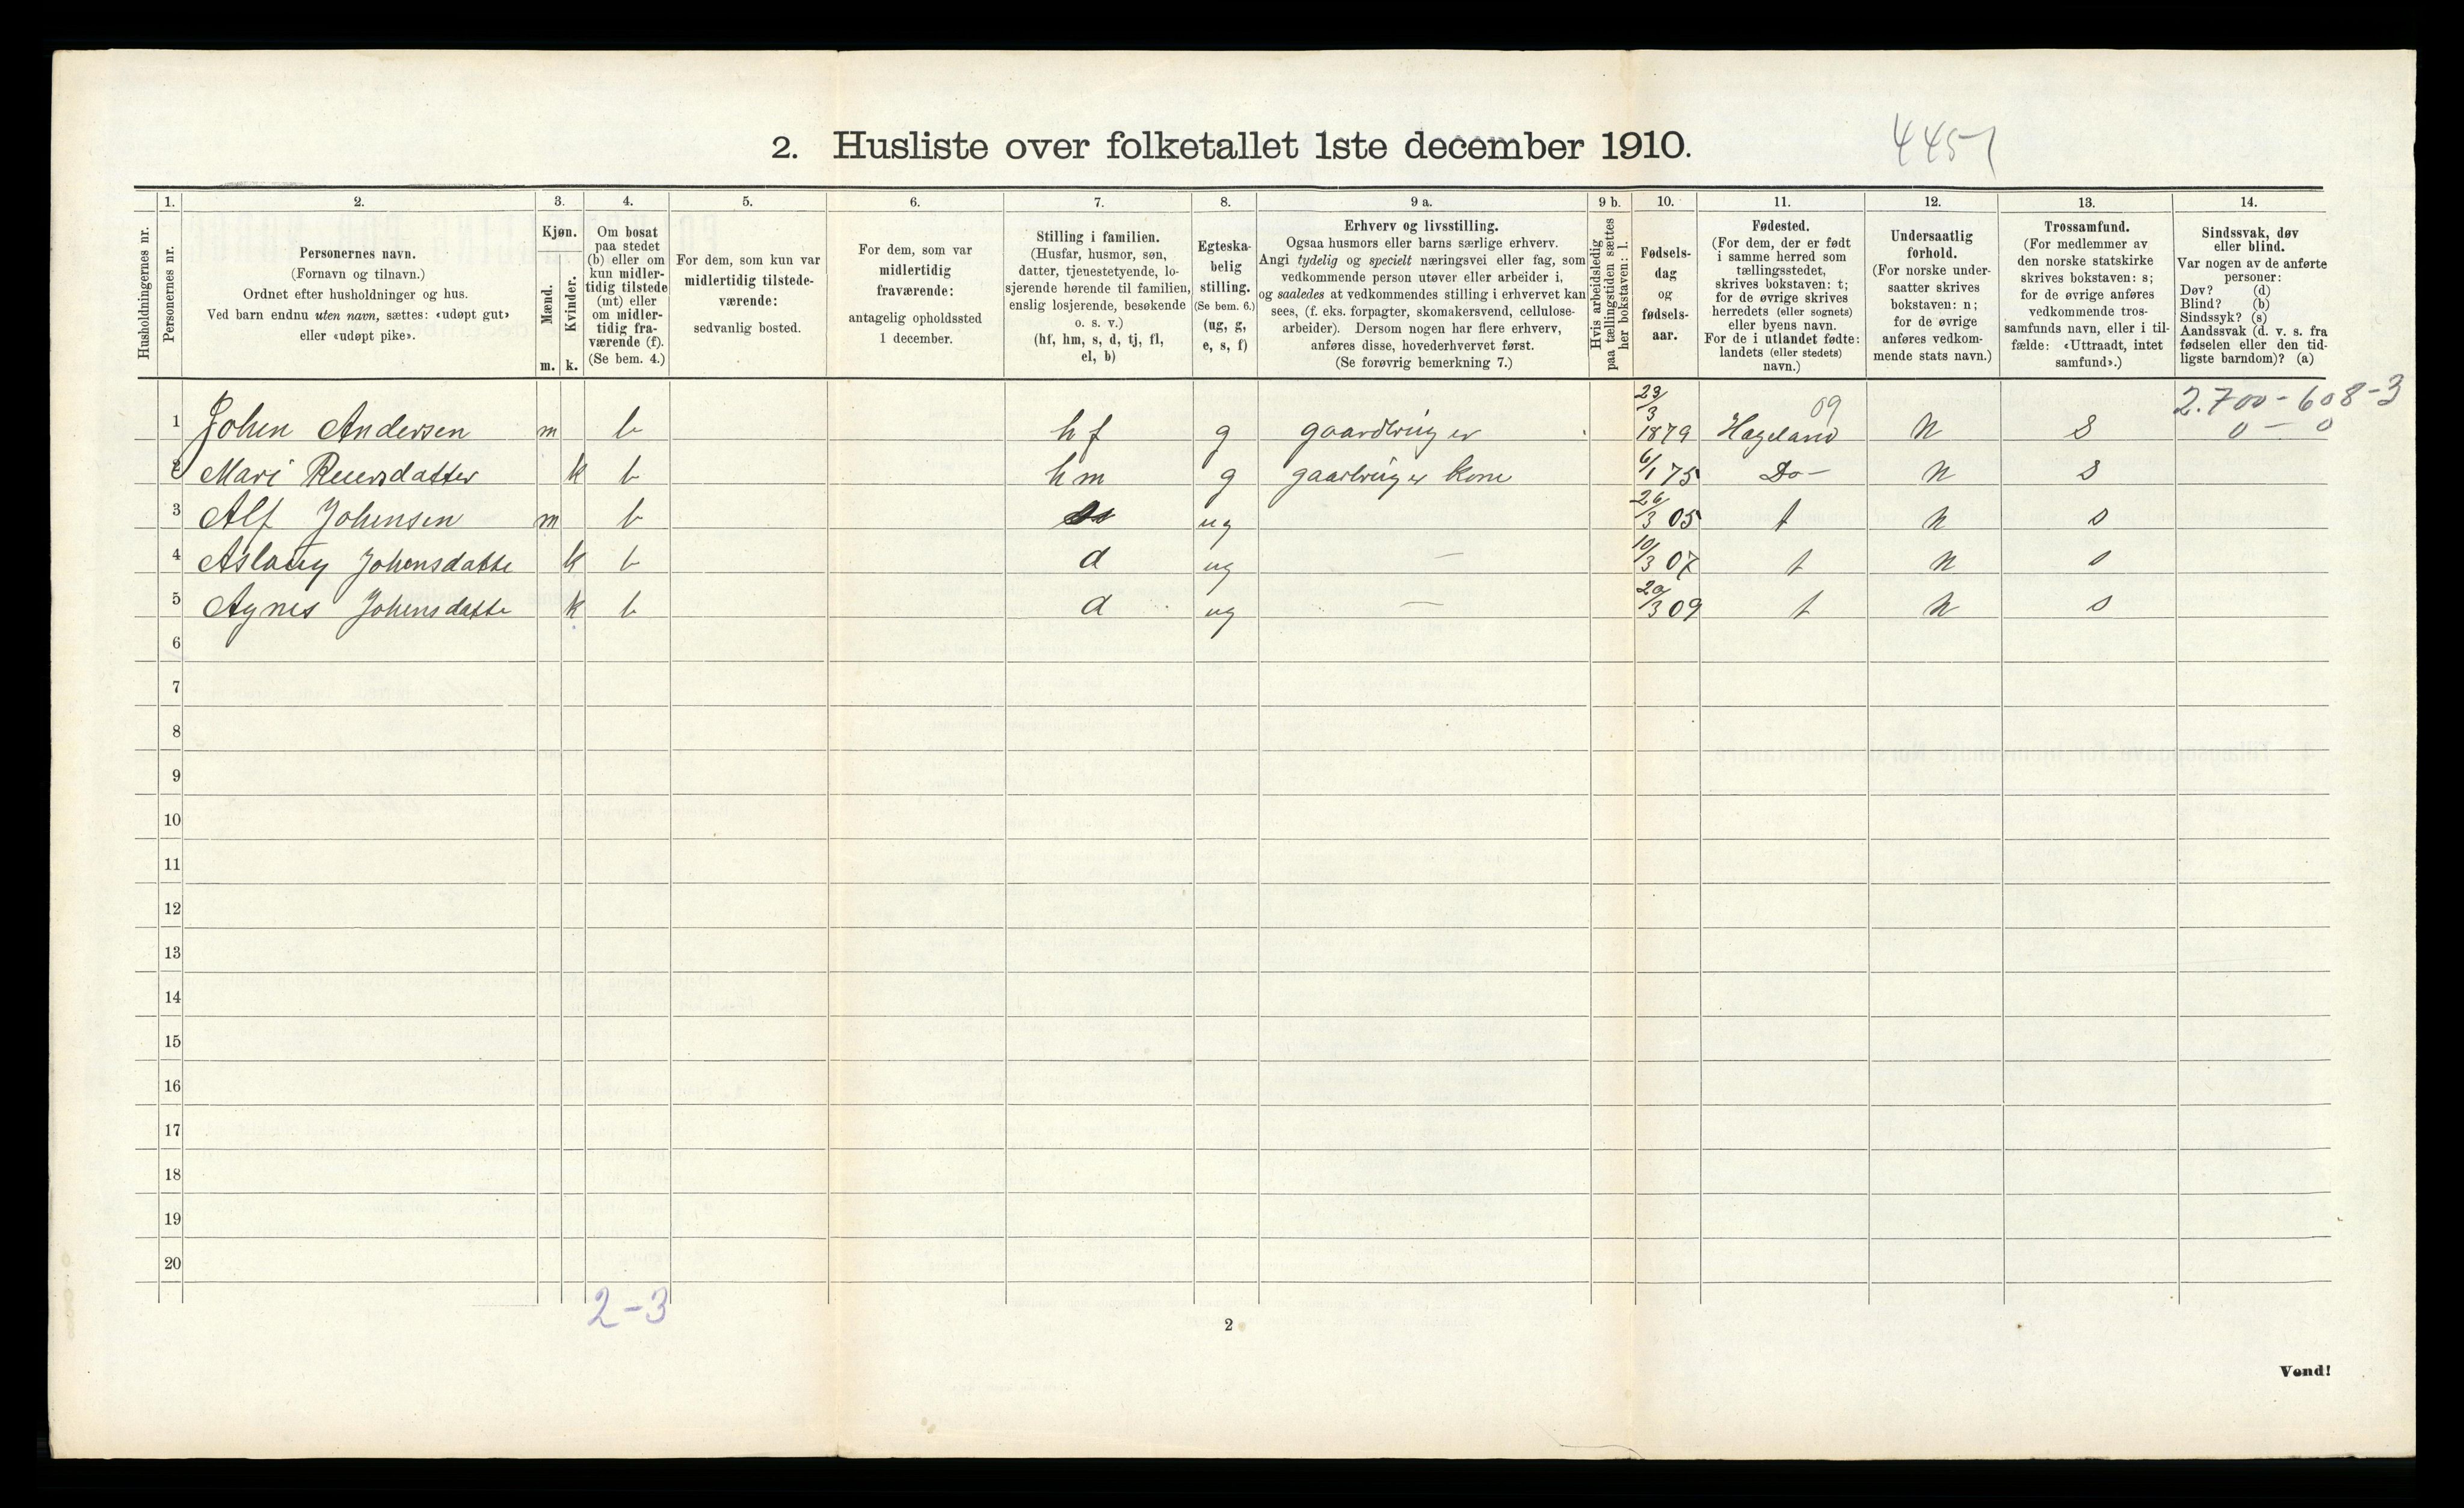 2. Husliste over folketallet 1ste december 1910.
4451
Husholdningernes nr.
1.
Personernes nr.
2.
Personernes navn.
(Fornavn og tilnavn.)
Ordnet efter husholdninger og hus.
Ved barn endnu uten navn, sættes: «udøpt gut»
eller «udøpt pike».
3.
Kjøn.
Mænd.
Kvinder.
m. k.
4.
Om bosat
paa stedet
(b) eller om
kun midler-
tidig tilstede
(mt) eller
om midler-
tidig fra-
værende (f).
(Se bem. 4.)
5.
For dem, som kun var
midlertidig tilstede-
værende:
sedvanlig bosted.
6.
For dem, som var
midlertidig
fraværende:
antagelig opholdssted
1 december.
7.
Stilling i familien.
(Husfar, husmor, søn,
datter, tjenestetyende, lo-
sjerende hørende til familien,
enslig losjerende, besøkende
o. s. v.)
(hf, hm, s, d, tj, fl,
el, b)
8.
Egteska-
belig
stilling.
(Se bem. 6.)
(ug, g,
e, s, f)
9 a.
Erhverv og livsstilling.
Ogsaa husmors eller barns særlige erhverv.
Angi tydelig og specielt næringsvei eller fag, som
vedkommende person utøver eller arbeider i,
og saaledes at vedkommendes stilling i erhvervet kan
sees, (f. eks. forpagter, skomakersvend, cellulose-
arbeider). Dersom nogen har flere erhverv,
anføres disse, hovederhvervet først.
(Se forøvrig bemerkning 7.)
9 b.
Hvis arbeidsledig
paa tællingstiden sættes
her bokstaven: l.
10.
Fødsels-
dag
og
fødsels-
aar.
11.
Fødested.
(For dem, der er født
i samme herred som
tællingsstedet,
skrives bokstaven: t;
for de øvrige skrives
herredets (eller sognets)
eller byens navn.
For de i utlandet fødte:
landets (eller stedets)
navn.)
12.
Undersaatlig
forhold.
(For norske under-
saatter skrives
bokstaven: n;
for de øvrige
anføres vedkom-
mende stats navn.)
13.
Trossamfund.
(For medlemmer av
den norske statskirke
skrives bokstaven: s;
for de øvrige anføres
vedkommende tros-
samfunds navn, eller i til-
fælde: «Uttraadt, intet
samfund».)
14.
Sindssvak, døv
eller blind.
Var nogen av de anførte
personer:
Døv? (d)
Blind? (b)
Sindssyk? (s)
Aandssvak (d. v. s. fra
fødselen eller den tid-
ligste barndom)? (a)
2.700-608-3
0 - 0
09
1 Johen Andersen m b hf g gaardbruger 23/3 1879 Hægeland n s
2 Mari k b hm g gaardbruger kone 6/1 75 Do- n s
3 Alf Johensen m b ug 26/3 05 t n s
4 Aslaug Johensdatte k b d ug — 10/3 07 t n s
5 Agnes Johensdatte k b d ug — 09 t n s
6
7
8
9
10
11
12
13
14
15
16
17
18
19
20
2-3
2
Vend!